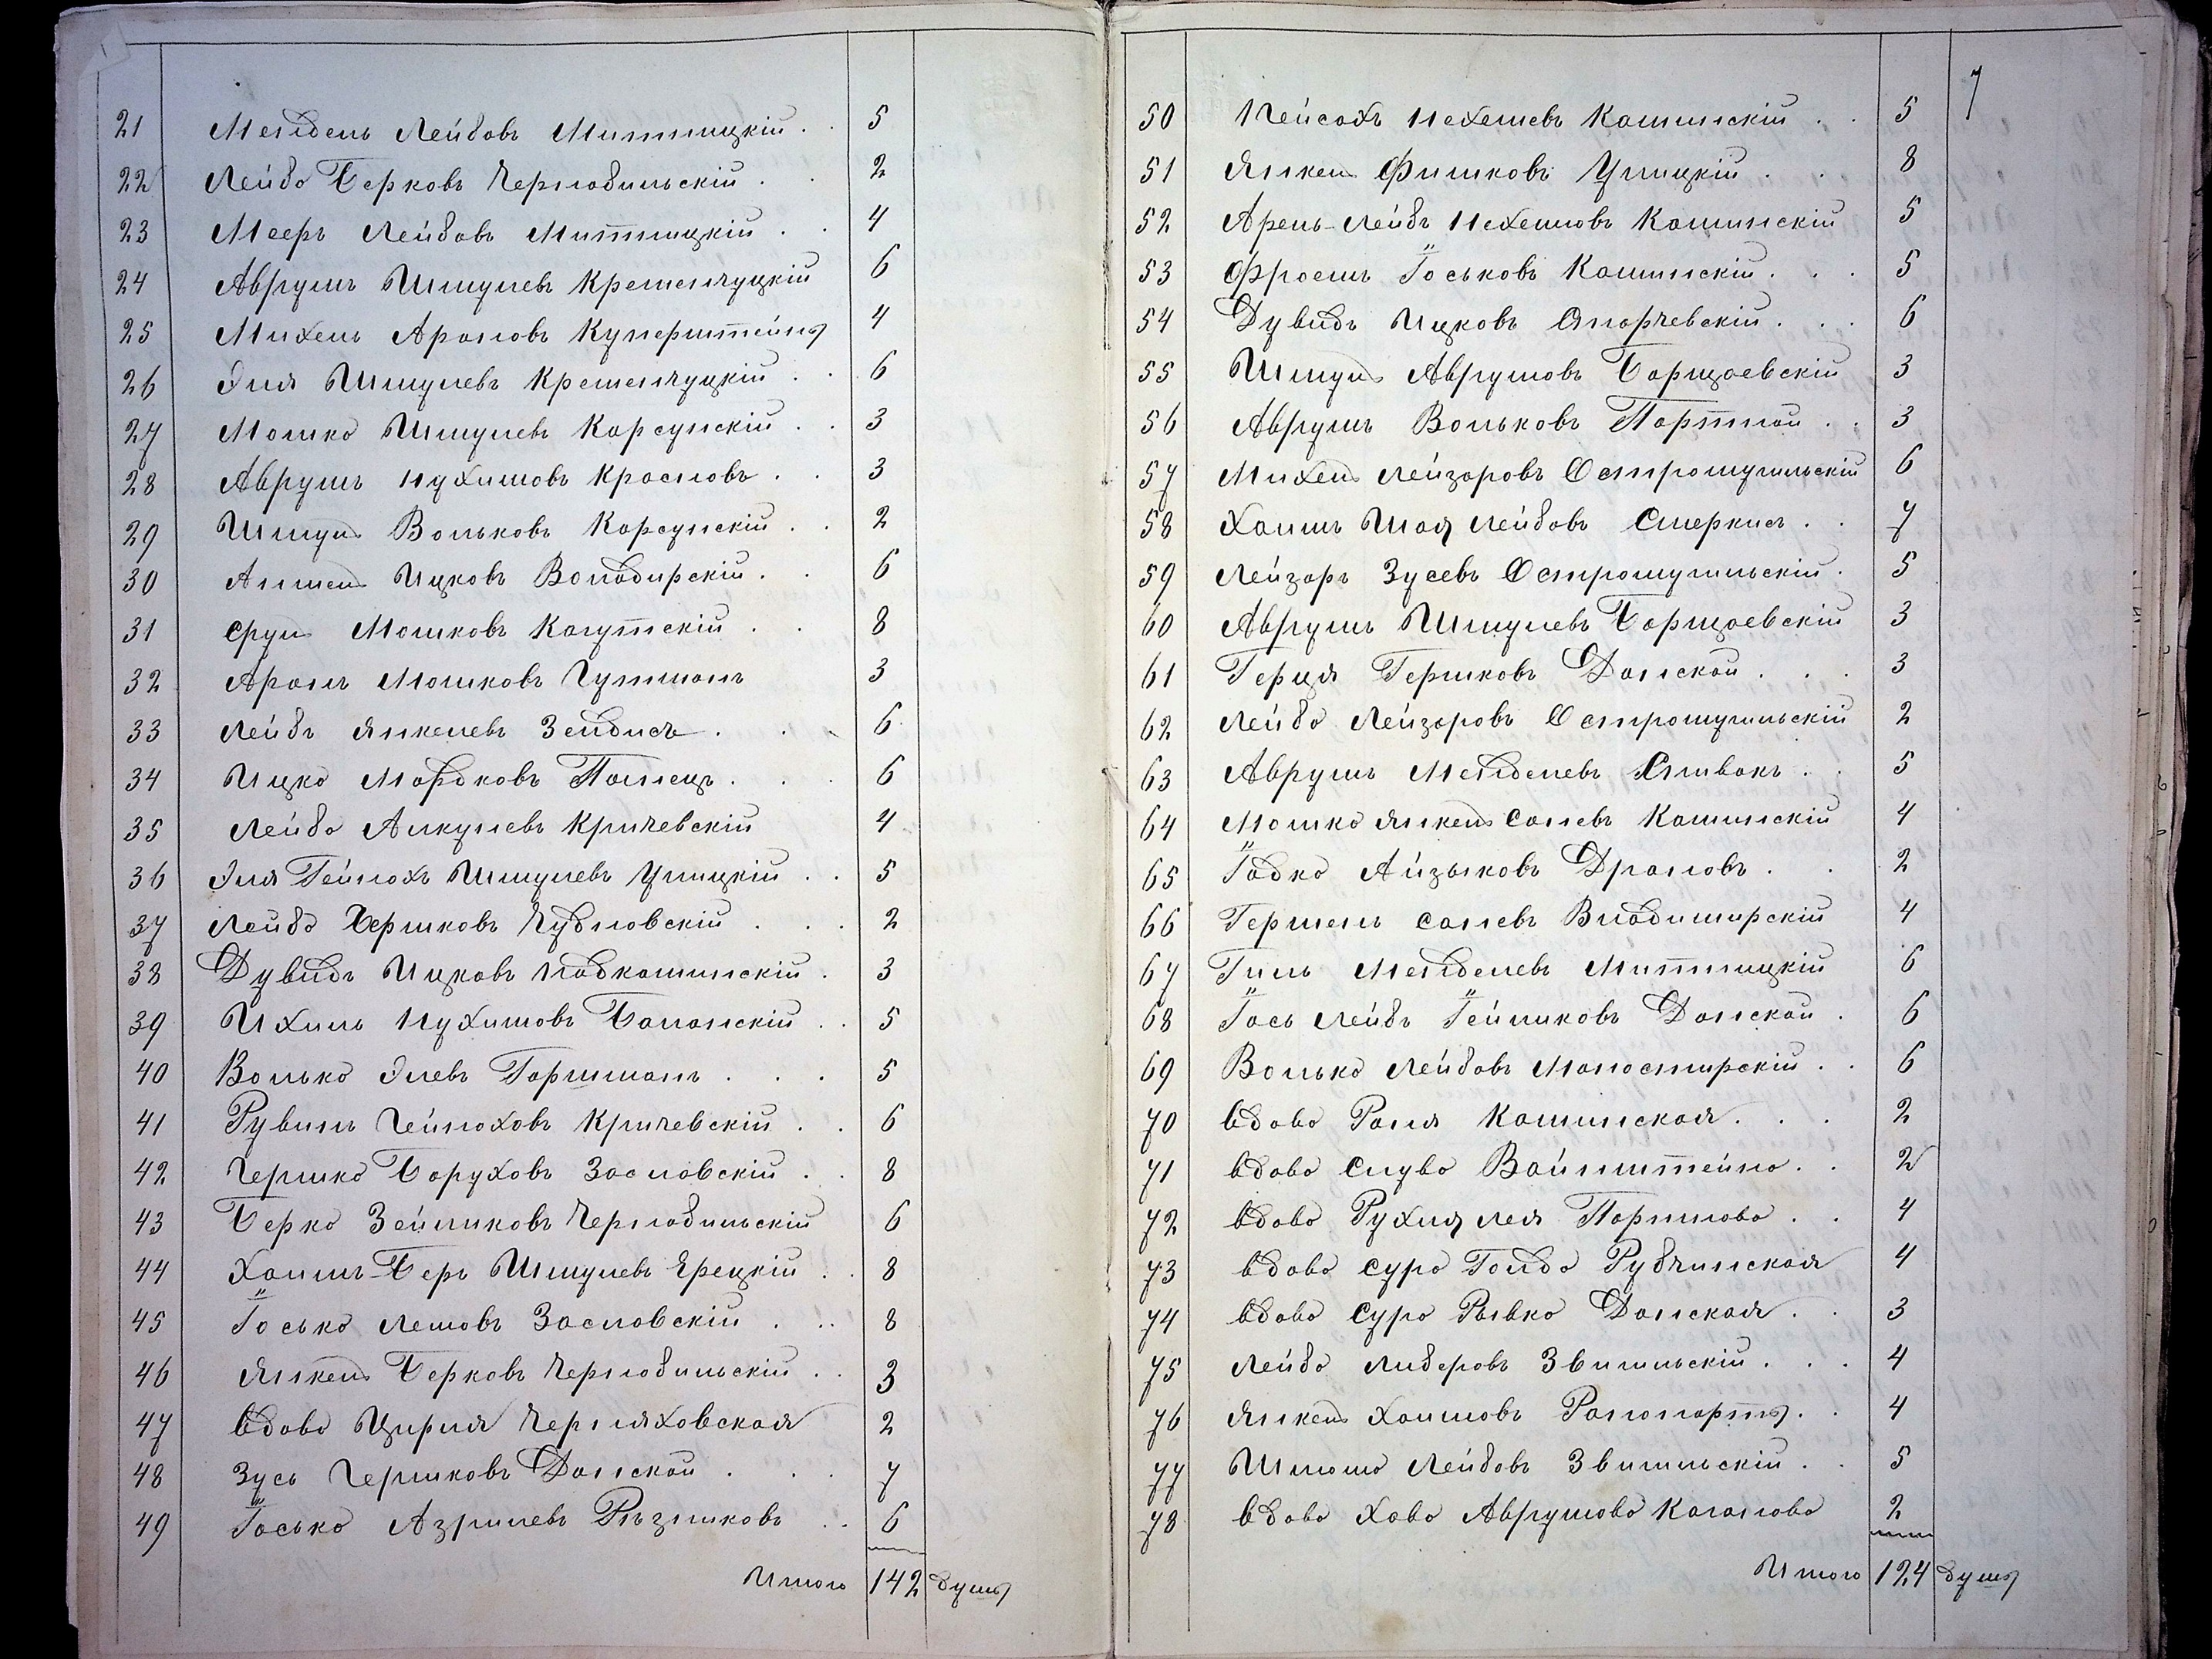 21 Мендель Лейбовъ Митницкій . . 5
22 Лейба Берковъ Чернобильскій . . 2
23 Мееръ Лейбовъ Митницкій . . 4
24 Аврумъ Шмулевъ Кременчуцкій 6
25 Михель Ароновъ Куперштейнъ 4
26 Эля Шмулевъ Кременчуцкій . . 6
27 Мошко Шмулевъ Корсунскій . . 3
28 Аврумъ Нухимовъ Красновъ . . 3
29 Шмуль Вольковъ Корсунскій . . 2
30 Аншель Ицковъ Володирскій . . 6
31 Сруль Мошковъ Кагутскій . . 8
32 Аронъ Мошковъ Гутманъ 3
33 Лейбъ Янкелевъ Зейдисъ . . . 6
34 Ицко Мордковъ Палецъ . . . 6
35 Лейба Анкулевъ Кричевскій 4
36 Эля Гейнохъ Шмулевъ Улицкій . . 5
37 Лейба Хершковъ Чудновскій . . . 2
38 Дувидъ Ицковъ Подкаминскій . 3
39 Ихиль Нухимовъ Баланскій . . 5
40 Волько Элевъ Гаршманъ . . . 5
41 Рувинъ Гейноховъ Кричевскій . . 6
42 Гершко Баруховъ Заславскій . . 8
43 Берко Зейликовъ Чернобильскій 6
44 Хаимъ-Беръ Шмулевъ Ерецкій . . 8
45 Іосько Лемовъ Заславскій . . 8
46 Янкель Берковъ Чернобильскій . . 3
47 Вдова Цирля Черняховская 2
48 Зусь Гершковъ Донской . . . 7
49 Іосько Азрилевъ Рѣзниковъ . . 6
Итого 142 душъ
7
50 Пейсахъ Нехемевъ Каминскій . . 5
51 Янкель Фишковъ Улицкій . . 8
52 Аренъ-Лейбъ Нехемовъ Каминскій 5
53 Фроемъ Іоськовъ Каминскій . . . 5
54 Дувидъ Ицковъ Опарчевскій . . . 6
55 Шмуль Аврумовъ Борщаевскій 3
56 Аврумъ Вольковъ Портной . . 3
57 Михель Лейзоровъ Остромугильскій 6
58 Хаимъ Шая Лейбовъ Смеркисъ . . 7
59 Лейзоръ Зусевъ Остромугильскій . 5
60 Аврумъ Шмулевъ Борщаевскій 3
61 Герця Гершковъ Донской . . . 3
62 Лейба Лейзоровъ Остромугильскій 2
63 Аврумъ Менделевъ Спивакъ . . 5
64 Мошко Янкель Саневъ Каминскій 4
65 Іодко Айзыковъ Драновъ . . 2
66 Гершель Саневъ Владимирскій 4
67 Гиль Менделевъ Митницкій 6
68 Іось Лейбъ Іейликовъ Донской . 6
69 Волько Лейбовъ Монастирскій . . 6
70 Вдова Раня Каминская . . . 2
71 Вдова Слува Вайнштейно . . 2
72 Вдова Рухля Лея Портнова . . 4
73 Вдова Сура Голда Рубчинская 4
74 Вдова Сура Рывка Донская . . 3
75 Лейба Либеровъ Звигильскій . . . 4
76 Янкель Хаимовъ Рапопортъ . . 4
77 Шлома Лейбовъ Звигильскій . . 5
78 Вдова Хава Аврумова Каганова 2
Итого 124 душъ